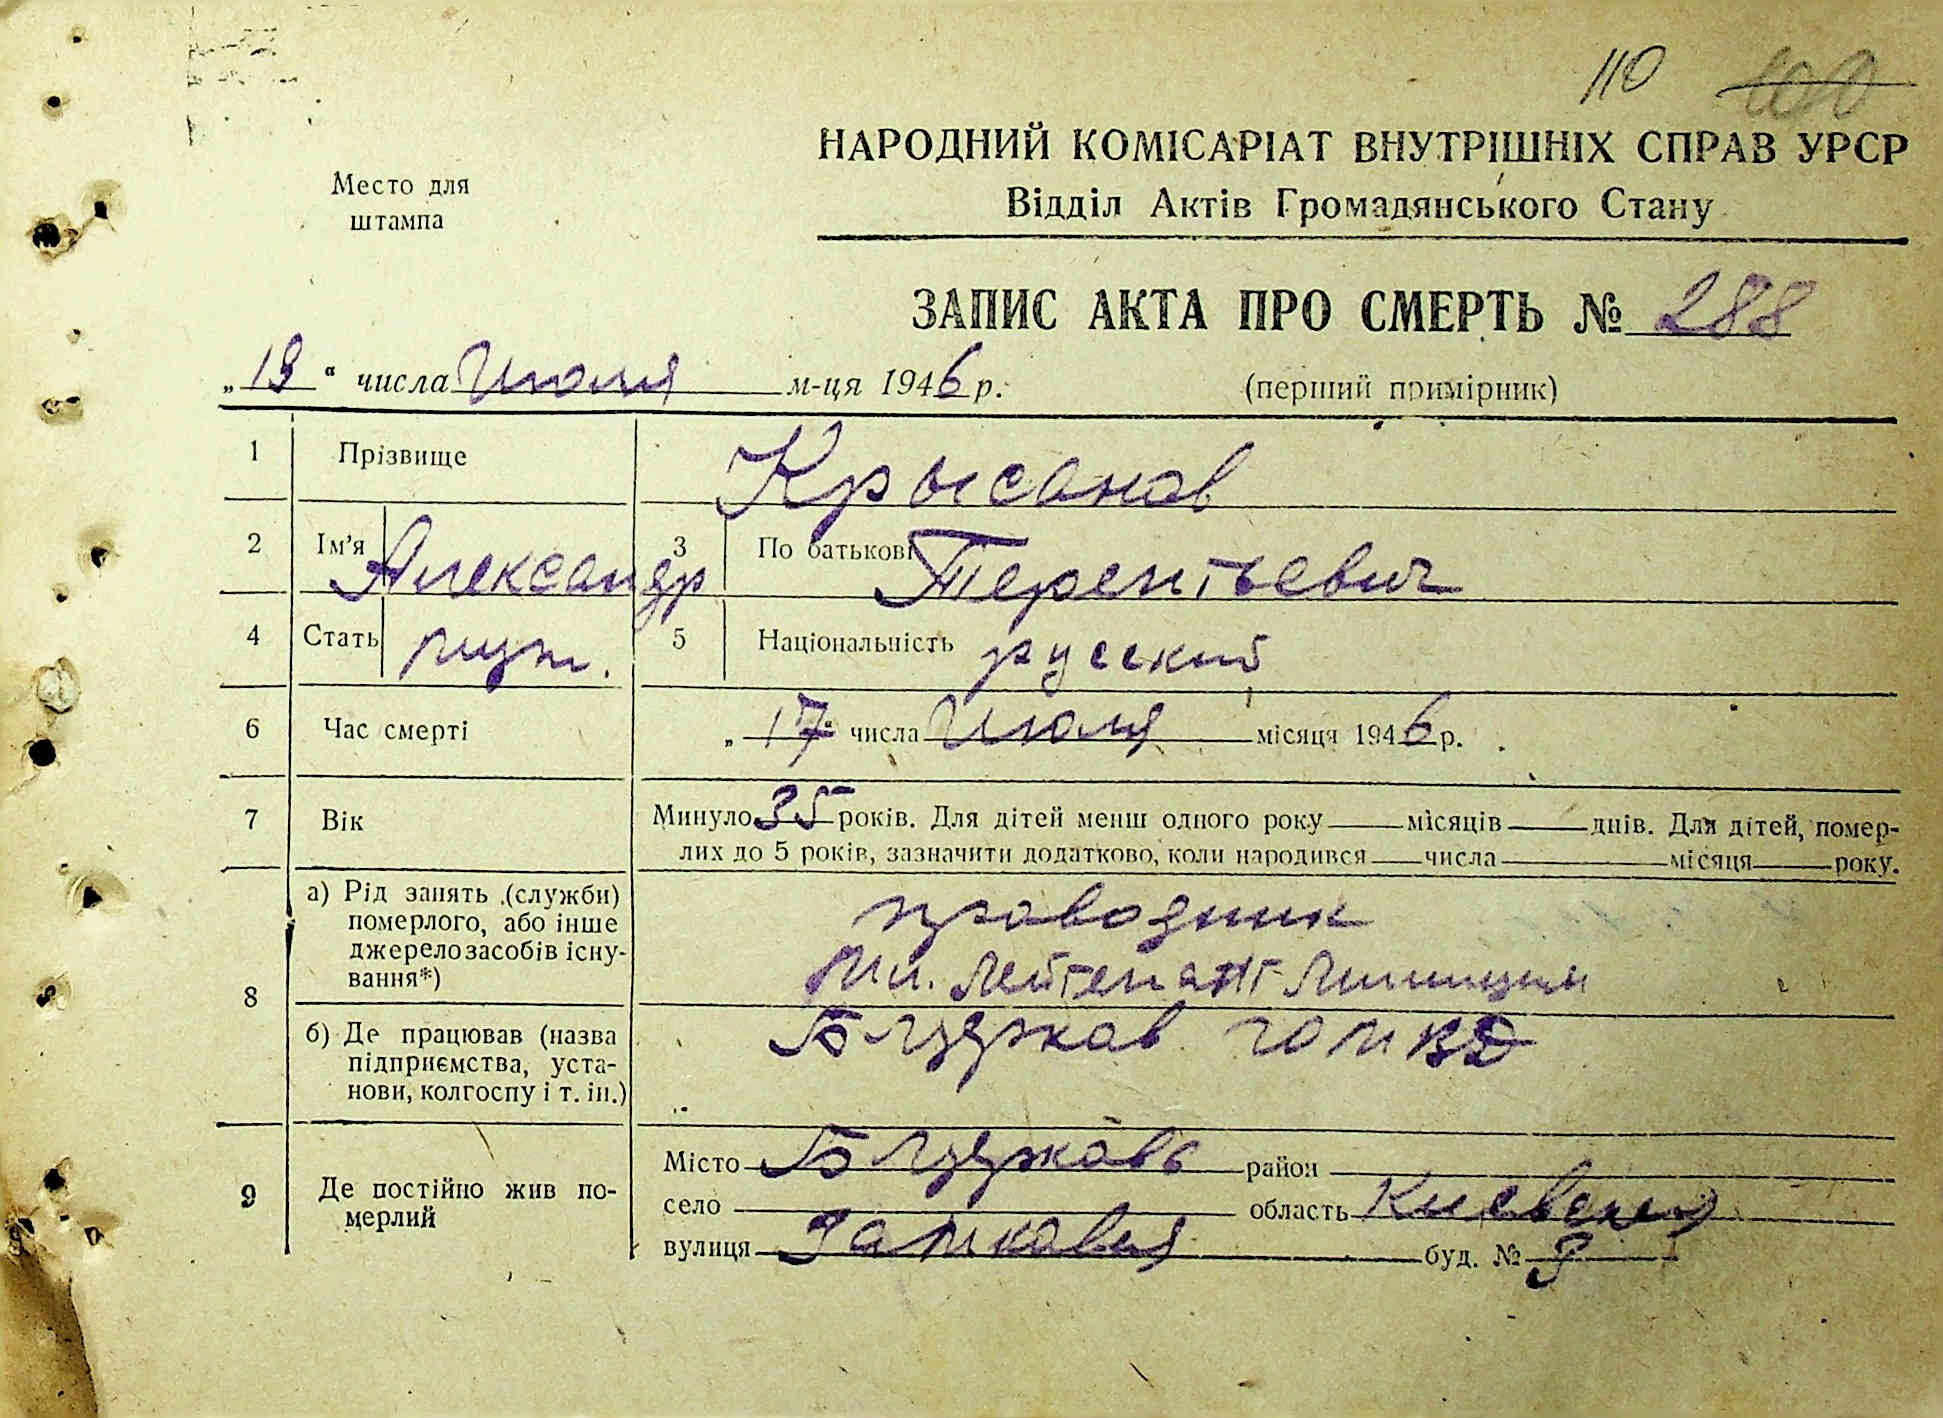 110 100
НАРОДНИЙ КОМІСАРІАТ ВНУТРІШНІХ СПРАВ УРСР
Відділ Актів Громадянського Стану
Место для
штампа
ЗАПИС АКТА ПРО СМЕРТЬ № 288
„19“ числа Июля м-ця 1946 р.
(перший примірник)
1 Прізвище Крысанов
2 Ім'я Александр 3 По батькові Терентьевич
4 Стать муж. 5 Національність русский
6 Час смерті „17“ числа Июля місяця 1946 р.
7 Вік Минуло 35 років. Для дітей менш одного року місяців днів. Для дітей, помер-
лих до 5 років, зазначити додатково, коли народився числа місяця року.
8 а) Рід занять (служби) померлого, або інше джерело засобів існу-вання*) проводник
Мл. Лейтенант Милиции
б) Де працював (назва підприємства, уста-нови, колгоспу і т. ін.) Б Церков ГОМВД
9 Де постійно жив по-мерлий
Місто Б Церковь район
село область Киевская
вулиця буд. №